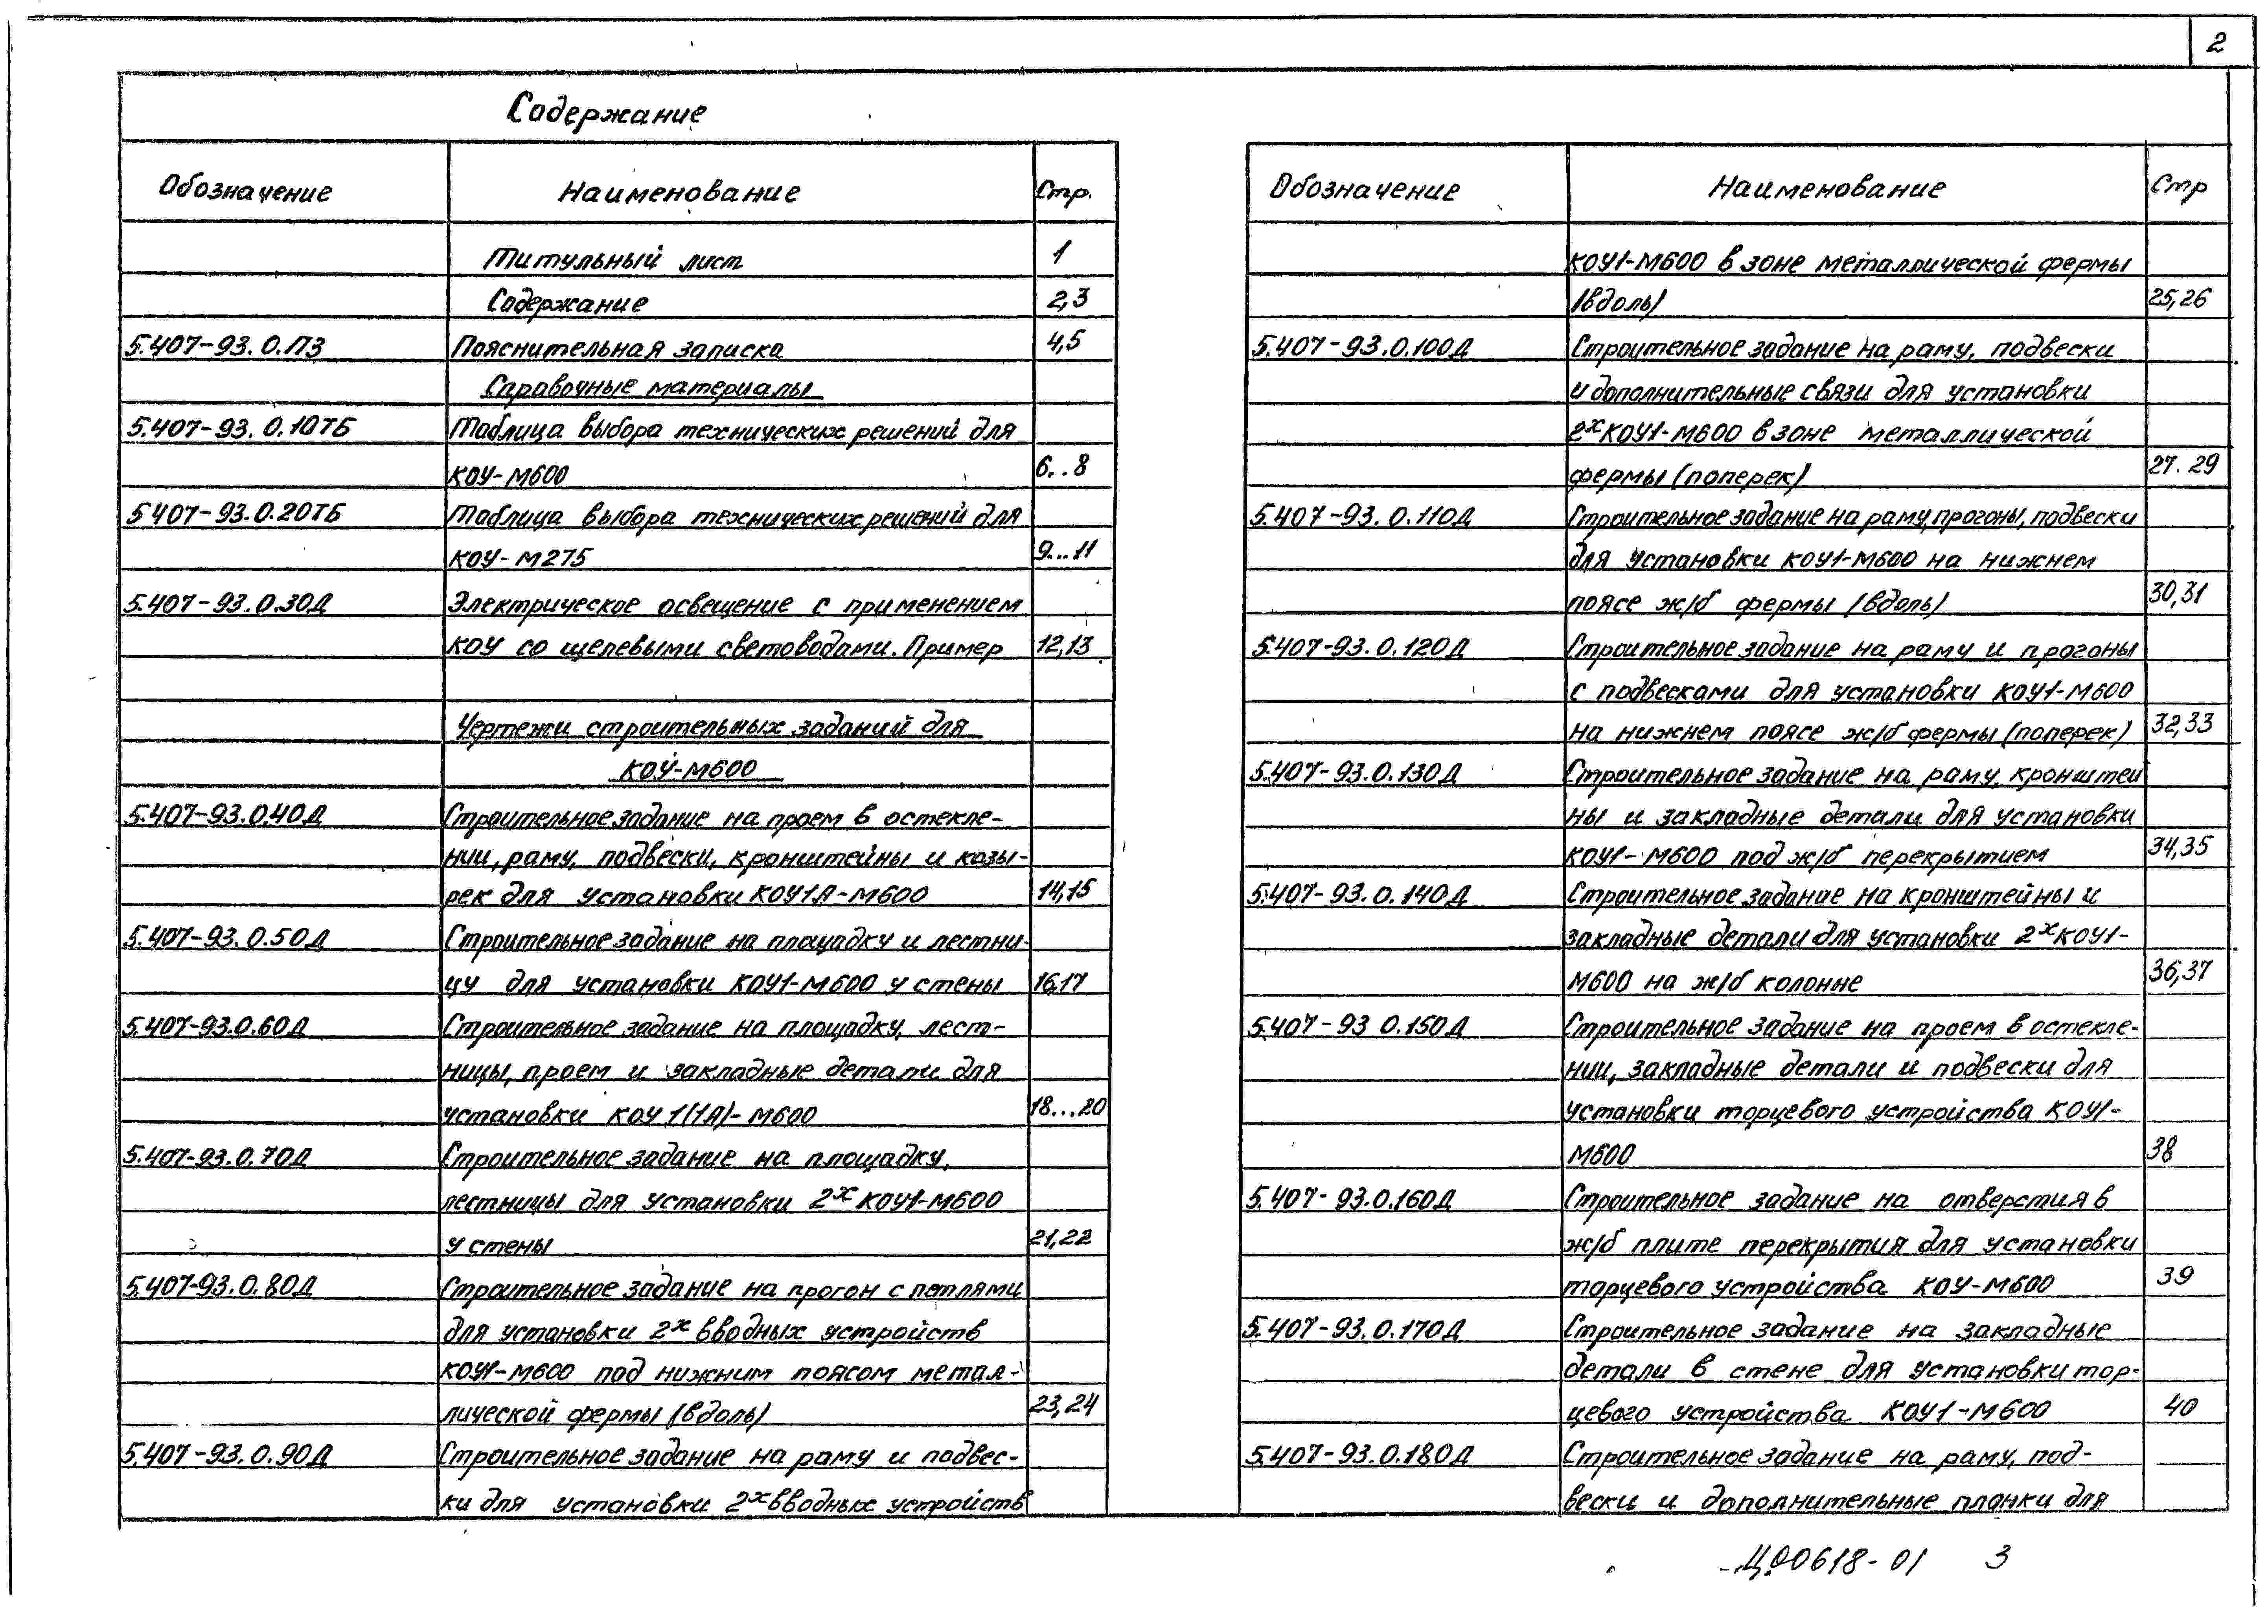 2
Содержание
Обозначение Наименование Стр.
Титульный лист 1
Содержание 2,3
5.407-93.0.ПЗ Пояснительная записка 4,5
Справочные материалы
5.407-93.0.10ТБ Таблица выбора технических решений для
КОУ-М600 6..8
5.407-93.0.20ТБ Таблица выбора технических решений для
КОУ-М275 9...11
5.407-93.0.30Д Электрическое освещение с применением
КОУ со щелевыми световодами. Пример 12,13
Чертежи строительных заданий для
КОУ-М600
5.407-93.0.40Д Строительное задание на проем в остекле-
нии, раму, подвески, кронштейны и козы-
рек для установки КОУ1А-М600 14,15
5.407-93.0.50Д Строительное задание на площадку и лестни-
цу для установки КОУ1-М600 у стены 16,17
5.407-93.0.60Д Строительное задание на площадку, лест-
ницы, проем и закладные детали для
установки КОУ1(1А)-М600 18...20
5.407-93.0.70Д Строительное задание на площадку,
лестницы для установки 2х КОУ1-М600
у стены 21,22
5.407-93.0.80Д Строительное задание на прогон с петлями
для установки 2х вводных устройств
КОУ1-М600 под нижним поясом метал-
лической фермы (вдоль) 23,24
5.407-93.0.90Д Строительное задание на раму и подвес-
ки для установки 2х вводных устройств
Обозначение Наименование Стр
КОУ1-М600 в зоне металлической фермы
(вдоль) 25,26
5.407-93.0.100Д Строительное задание на раму, подвески
и дополнительные связи для установки
2х КОУ1-М600 в зоне металлической
фермы (поперек) 27.29
5.407-93.0.110Д Строительное задание на раму, прогоны, подвески
для установки КОУ1-М600 на нижнем
поясе ж/б фермы (вдоль) 30,31
5.407-93.0.120Д Строительное задание на раму и прогоны
с подвесками для установки КОУ1-М600
на нижнем поясе ж/б фермы (поперек) 32,33
5.407-93.0.130Д Строительное задание на раму, кронштей
ны и закладные детали для установки
КОУ1-М600 под ж/б перекрытием 34,35
5.407-93.0.140Д Строительное задание на кронштейны и
закладные детали для установки 2х КОУ1-
М600 на ж/б колонне 36,37
5.407-93 0.150Д Строительное задание на проем в остекле-
нии, закладные детали и подвески для
установки торцевого устройства КОУ1-
М600 38
5.407-93.0.160Д Строительное задание на отверстия в
ж/б плите перекрытия для установки
торцевого устройства КОУ-М600 39
5.407-93.0.170Д Строительное задание на закладные
детали в стене для установки тор-
цевого устройства КОУ1-М600 40
5.407-93.0.180Д Строительное задание на раму, под-
вески и дополнительные планки для
Ц.00618-01 3